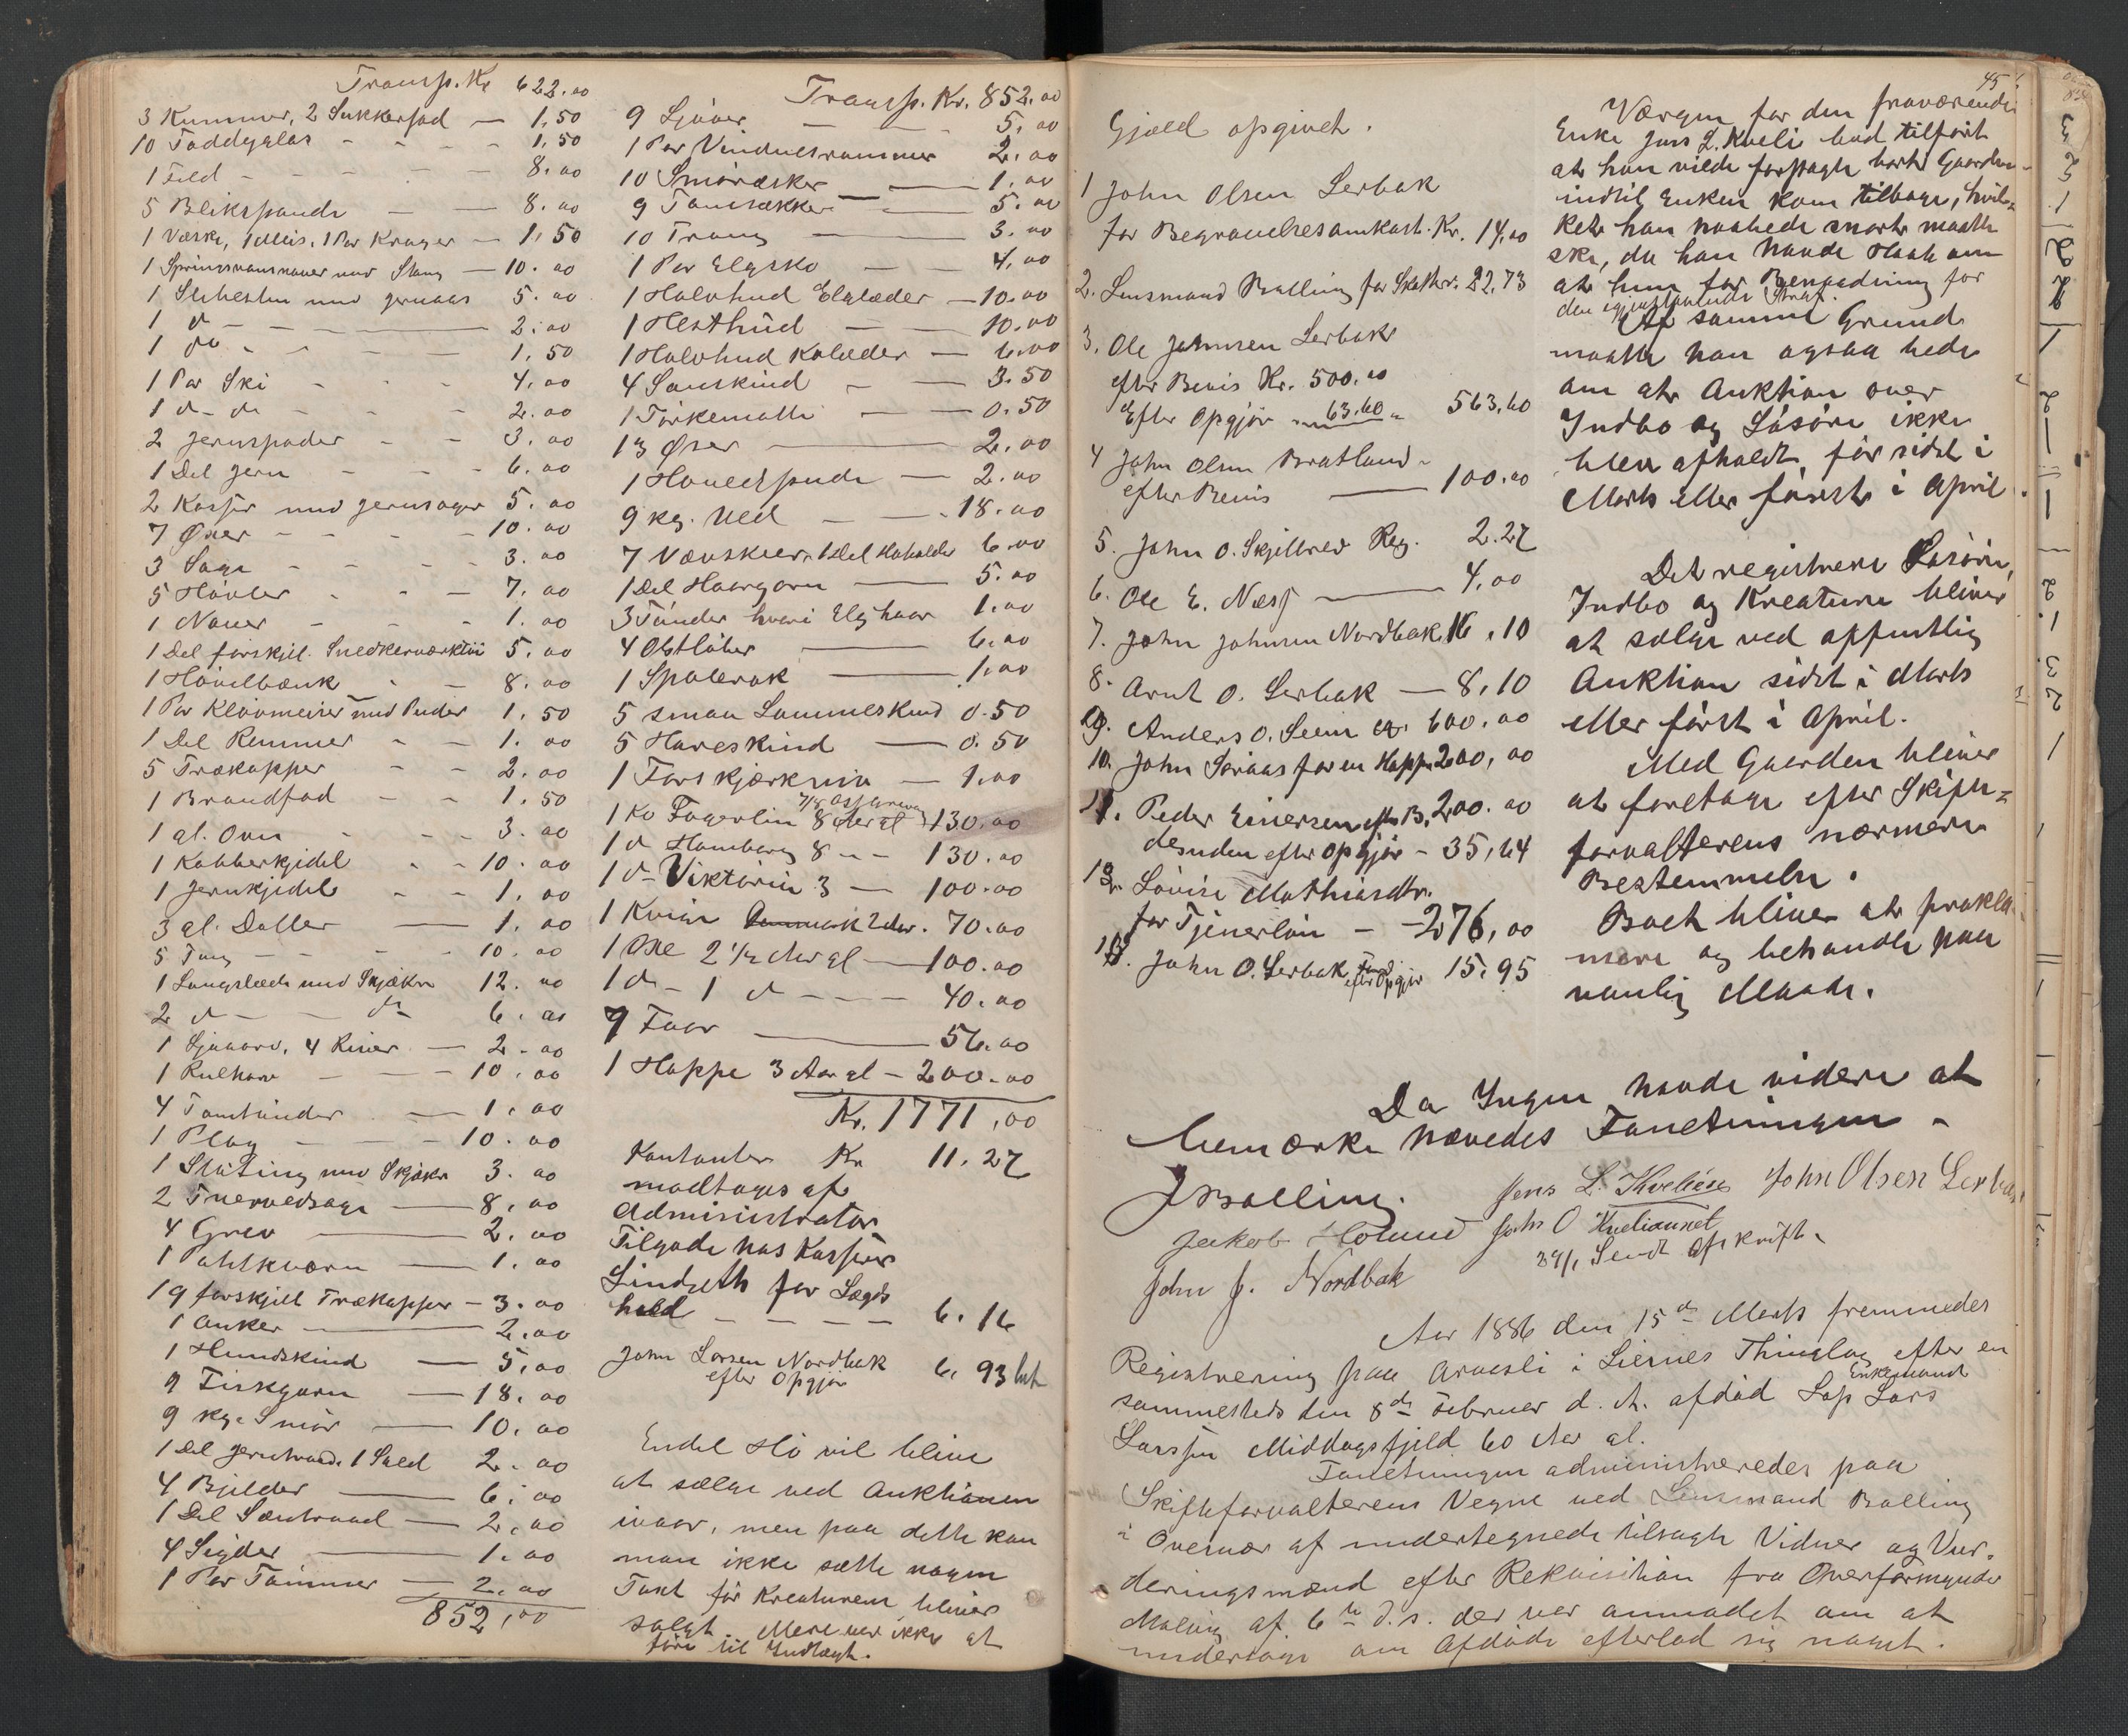 Transp. Kr 622.00
3 Kummer, 2 Sukkerfad — 1,50
10 Toddyglas - - - - 1,50
1 Feld - - - - - 8.00
5 Blikspande — — 8.00
1 Væske, 1 Meis, 1 Par Krager — 1,50
1 med Stang — 10.00
1 med 5.00
1 do - - 2.00
1 do - - - 1,50
1 Par Ski - - - 4,00
1 d- do - - - 2.00
2 Jernspader - - 3.00
1 Del Jern - - - 6.00
2 Kasser med Jernsager 5.00
7 Øxer - - - - 10.00
3 Sage - - - - 3.00
5 Høvler - - - 7.00
1 Naver - - - 1.00
1 Del forskjell. Snedkerværktøi 5.00
1 Høvelbænk - - 8.00
1 Par Kløvmeiser med Puder 1,50
1 Del Remmer - - 1.00
5 Trækopper - - 2.00
1 Brandfad - - 1.50
1 gl. Ovn - - 3.00
1 Kobberkjedel - - 10.00
1 Jernkjedel - - 1,00
3 gl. Daller — 1.00
5 - - - 10.00
1 Langslæde med Skjækre 12.00
2 d- - - do 6.00
1 , 4 River — 2.00
1 Rulharv — — 10.00
4 — 1.00
1 Plog — — 10.00
1 Slåting med Skjækre 3.00
2 Tvervedsage — 8.00
4 Grev — 2.00
1 — 1.00
19 forskjell Trækopper — 3.00
1 Anker — 2.00
1 Hundskind — 5,00
9 Fiskgarn — 18.00
9 kg. Smør — 10,00
1 Del Jerntraad. 1 Sald 2.00
4 Bjelder — 6,00
1 Del — 2,00
4 Sigder — 1.00
1 Par Tømmer — 2.00
852,00
Transp. Kr. 852.00
9 Ljaaer — 5,00
1 Par Vinduesrammer 2.00
10 Smøræsker — 1.00
9 Tomsækker — 5.00
10 Traug — 3.00
1 Par Elgsko — 4,00
1 Halvhud Elglæder — 10.00
1 Hesthud — 10.00
1 Halvhud Kolæder — 6.00
4 Saueskind — 3.50
1 Tørkematte — 0.50
13 Øser — 2.00
1 Hovedpude — 2.00
9 kg. Uld — 18.00
7 Vævskeer, 1 Del 6.00
1 Del Haargarn — 5.00
3 Tønder hvori Elghaar 1.00
4 — 6.00
1 Spolerok — 1.00
5 smaa Lammeskind 0.50
5 Hareskind — 0.50
1 — 1.00
1 Ko Fagerlin 8 Aar gl 130.00
1 d- 8 - - 130.00
1 d- Viktoria 3 — 100.00
1 Kvige 2 Aar. 70.00
1 Oxe 2 1/2 Aar gl — 100.00
1 d- 1 d- - - - 40.00
7 Faar — 56.00
1 Hoppe 3 Aar gl — 200.00
Kr. 1771,00
Kontanter Kr 11.27
modtages af
Administrator
Tilgode hos Kasserer
Lindseth for Lægds
hold — — — — 6.16
John Larsen Nordbak
efter Opgjør 6.93
Endel Hø vil blive
at sælge ved Auktionen
ivaar, men paa dette kan
man ikke sætte nogen
Taxt før Kreaturene bliver
solgt. Mere var ikke at
føre til Indtægt.
45
Gjæld opgivet.
1 John Olsen Lerbak
for Begravelsesomkost. Kr. 14,00
2. Lensmand Balling for Skatter. 22.73
3. Ole Johnsen Lerbak
efter Bevis Kr. 500.00
Efter Opgjør " 63.60 " 563,60
4 John Olsen Bratland
efter Bevis — 100.00
5. John O. Skjelbred Reg. 2.27
6. Ole E. Næss — 4,00
7. John Johnsen Nordbak 16,10
8. Arnt O. Lerbak — 8,10
9. Anders O. Seem 600.00
10. John for en Hoppe 200,00
11. Peder Einersen eft B. 200.00
desuden efter Opgjør - 35,64
12. Lovise Mathiasdtr.
for Tjenerløn — 276,00
13. John O. Lerbak efter Opgjør 15.95
Værgen for den fraværende
Enke Jens L. Kveli bad tilført
at han vilde forpagte bort Gaarden
indtil Enken kom tilbage, hvil=
ket han haabede snart maatte
ske, da han havde Haab om
at hun for Benaadning for
den igjenstaaende Straf.
Af samme Grund
maatte han ogsaa bede
om at Auktion over
Indbo og Løsøre ikke
blev afholdt før sidst i
Marts eller først i April.
Det registrere Løsøre,
Indbo og Kreature bliver
at sælge ved offentlig
Auktion sidst i Marts
eller først i April.
Med Gaarden bliver
at foretage efter Skifte=
forvalterens nærmere
Bestemmelse.
Boet bliver at prokla=
mere og behandle paa
vanlig Maade.
Da Ingen havde videre at
bemærke hævedes Forretningen
J Balling. Jens L. Kvelien John Olsen Lerbak
Jakob Holand John O Kveliaunet
John J. Nordbak Sendt Afskrift.
Aar 1886 den 15de Marts fremmedes
Registrering paa Arvesli i Liernes Thinglag efter en
sammesteds den 8de Februar d. A. afdød Enkemand Lap Lars
Larssen Middagsfjeld 60 Aar gl.
Forretningen administreredes paa
Skifteforvalterens Vegne ved Lensmand Balling
i Overvær af undertegnede tilsagte Vidner og Vur=
deringsmænd efter Rekvisition fra Overformynder
Moling af 6te d.s. der var anmodet om at
undersøge om Afdøde efterlod sig noget.